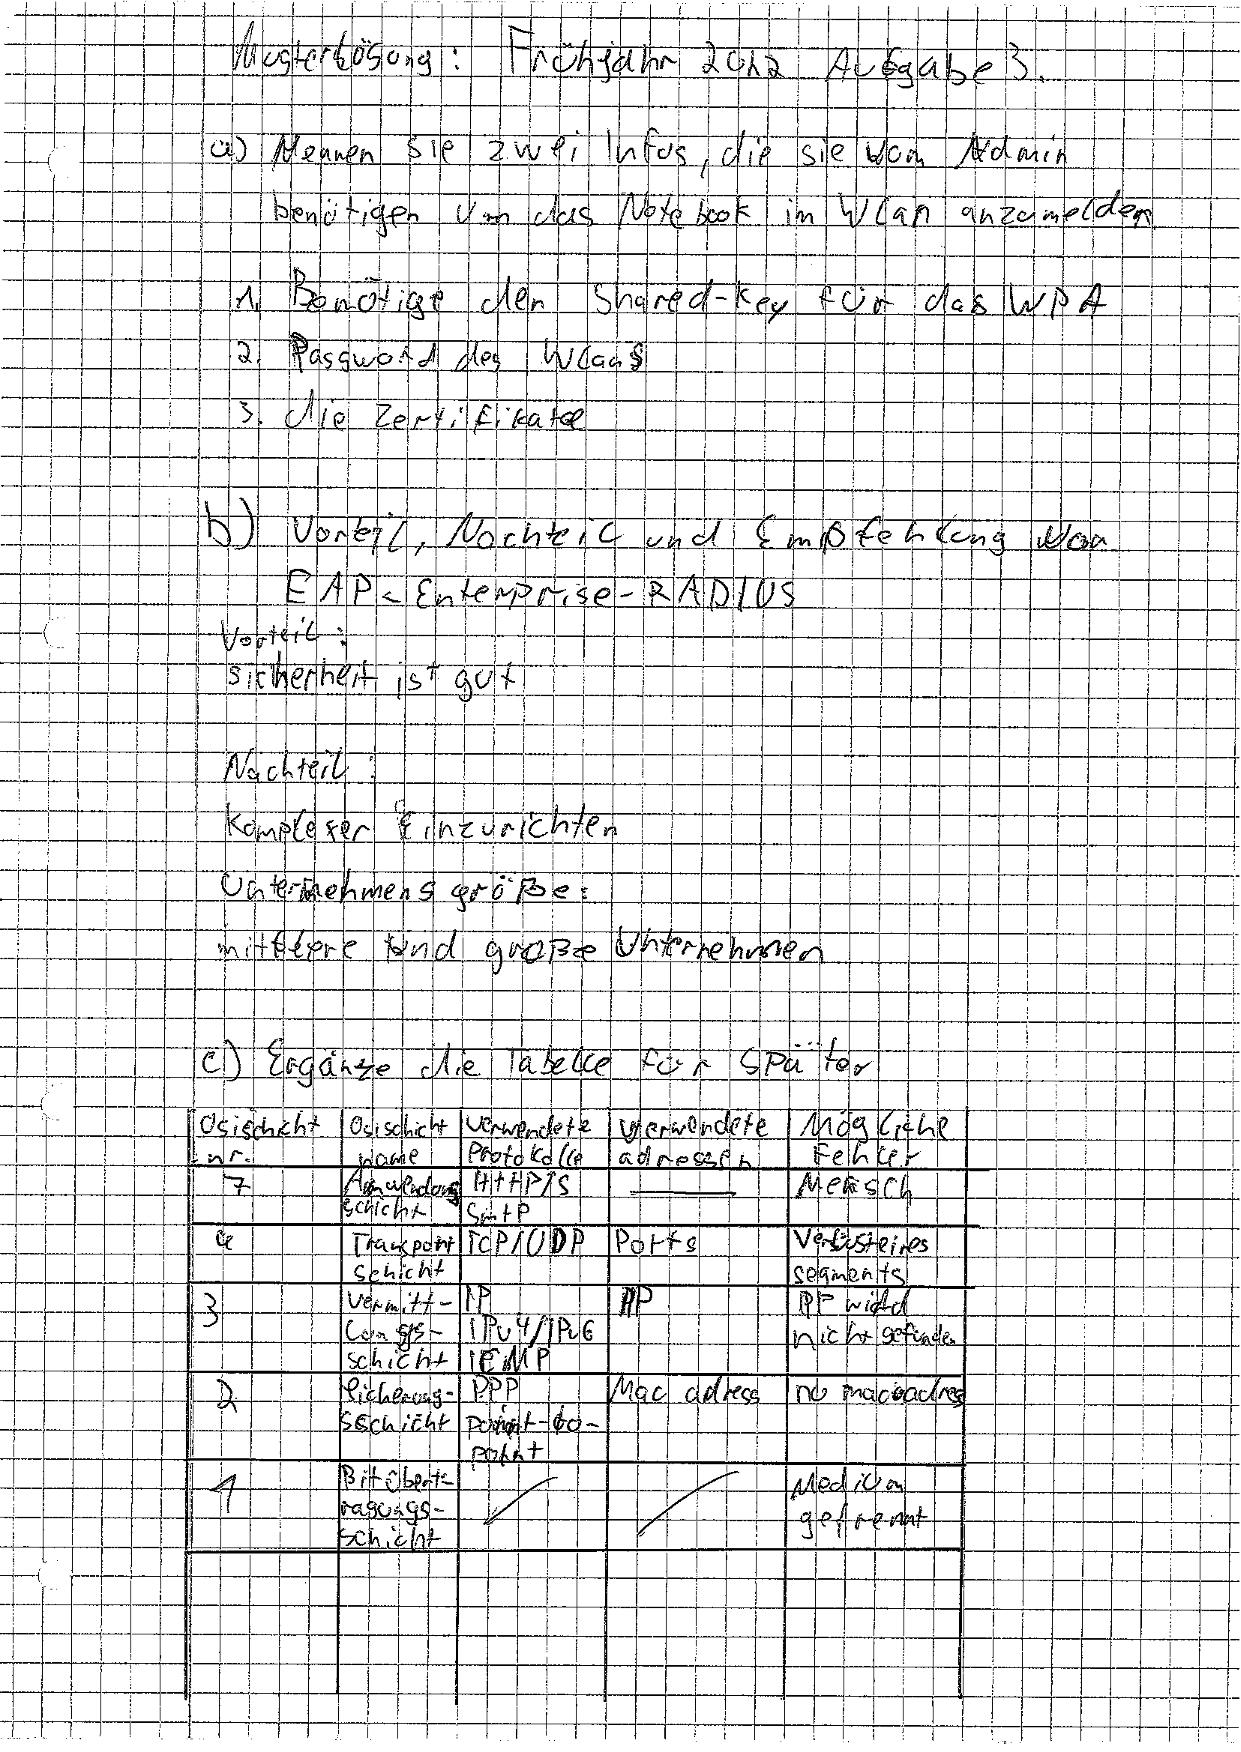 Musterlösung: Frühjahr 2012 Aufgabe 3.
a) Nennen sie zwei Infos, die sie vom Admin
benötigen um das Notebook im Wlan anzumelden
1. Benötige den Shared-Key für das WPA
2. Password des Wlans
3. die Zertifikate
b) Vorteil, Nachteil und Empfehlung von
EAP-Enterprise-RADIUS
Vorteil:
Sicherheit ist gut
Nachteil:
Komplexer Einzurichten
Unternehmensgröße:
mittlere und große Unternehmen
c) Ergänze die Tabelle für später
Osischicht nr. | Osischicht name | Verwendete Protokolle | Verwendete adressen | Mögliche Fehler
7 | Anwendung schicht | HTTP/S SmtP | — | Mensch
4 | Transport schicht | TCP/UDP | Ports | Verlust eines segments
3 | Vermitt-lungs-schicht | IP IPv4/IPv6 ICMP | IP | IP wird nicht gefunden
2 | Sicherung-sschicht | PPP point-to-point | Mac adress | no mac adres
1 | Bitübert-ragungs-schicht | / | / | Medium getrennt